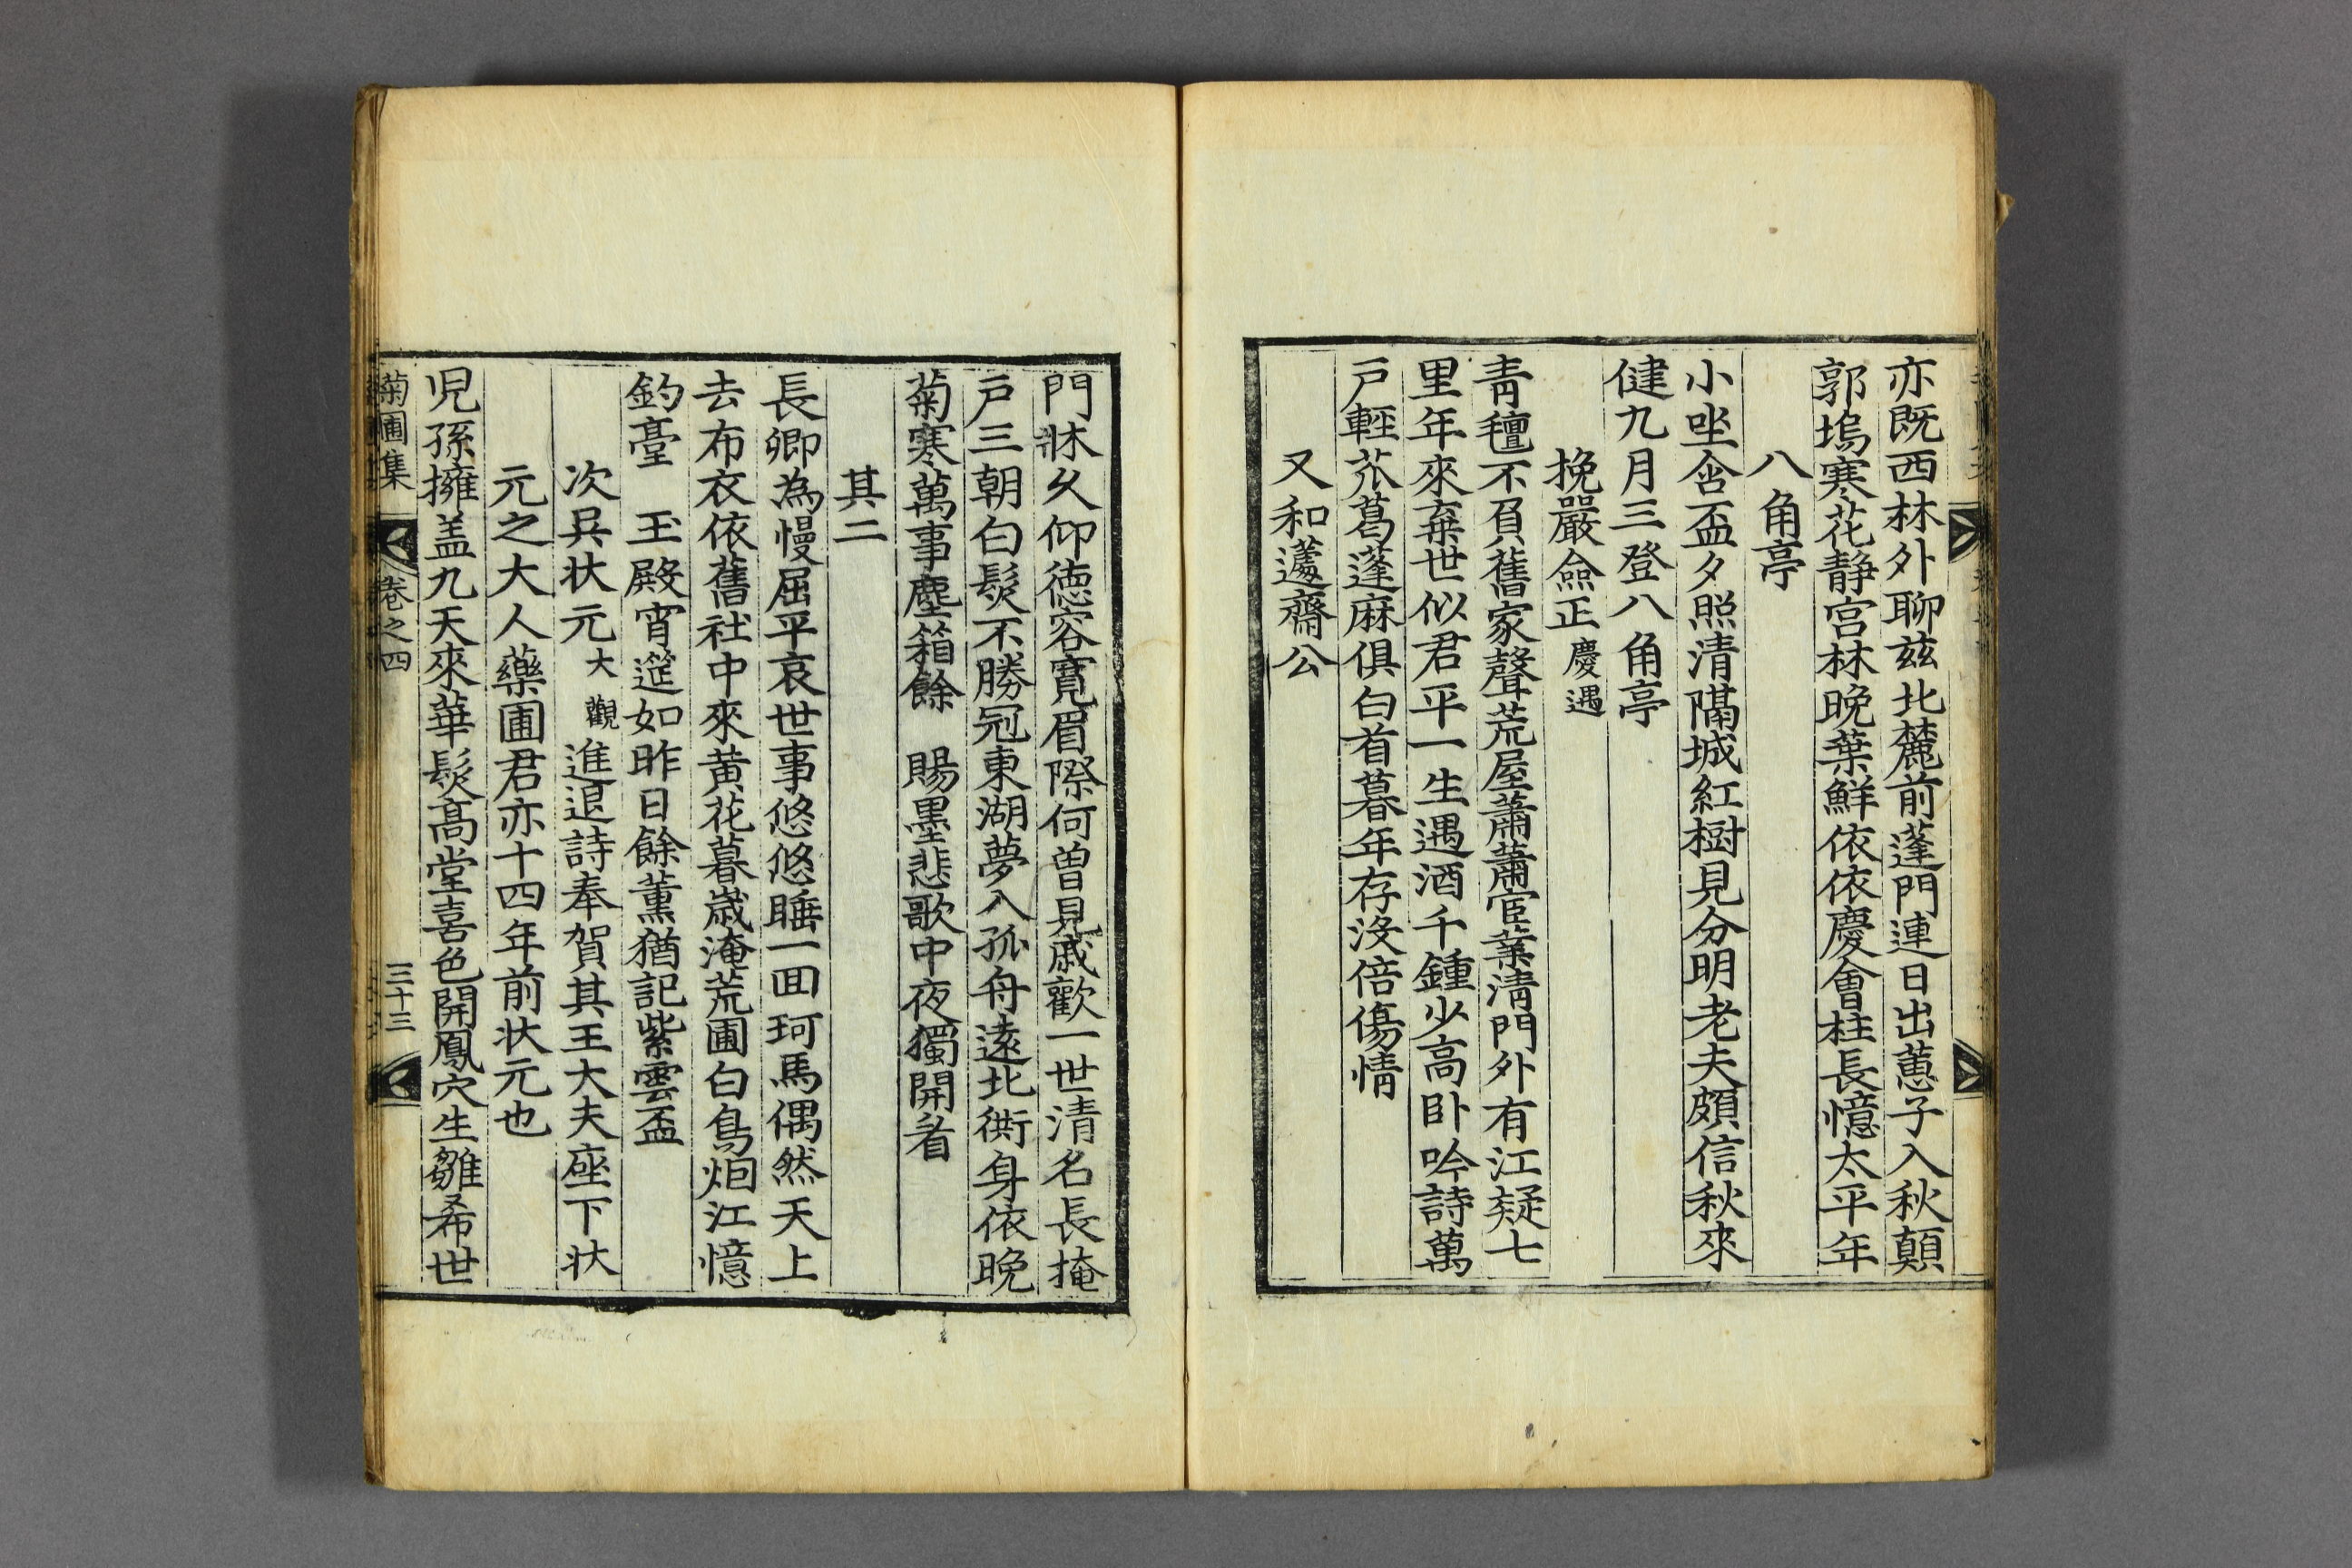 亦既西林外聊玆北麓前蓬門連日出蔥子入秋顛
郭塢寒花静宫林晩葉鮮依依慶會柱長憶太平年
八角亭
小坐含盃夕照清隔城紅樹見分明老夫頗信秋來
健九月三登八角亭
挽嚴僉正慶遇
靑氊不負舊家聲荒屋蕭蕭宦業淸門外有江疑七
里年來棄世似君平一生遇酒千鍾少高卧吟詩萬
戶輕苽葛蓬麻俱白首暮年存沒倍傷情
又和薳齋公
門牀久仰德容寬眉際何曾見戚歡一世清名長掩
戶三朝白髮不勝冠東湖夢入孤舟遠北衙身依晩
菊寒萬事塵箱餘 賜墨悲歌中夜獨開看
其二
長卿為慢屈平哀世事悠悠睡一回珂馬偶然天上
去布衣依舊社中來黃花暮歲淹荒圃白鳥烟江憶
釣臺 玉殿宵筵如昨日餘薰猶記紫雲盃
次吳状元大觀進退詩奉賀其王大夫座下状
元之大人藥圃君亦十四年前状元也
児孫擁盖九天來華髮高堂喜色開鳳穴生雛希世
菊圃集 卷之四 三十三